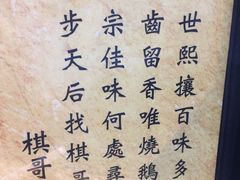 世熙攘百味多
齒留香唯燒鵝
宗佳味何處尋
步天后找棋哥
棋哥